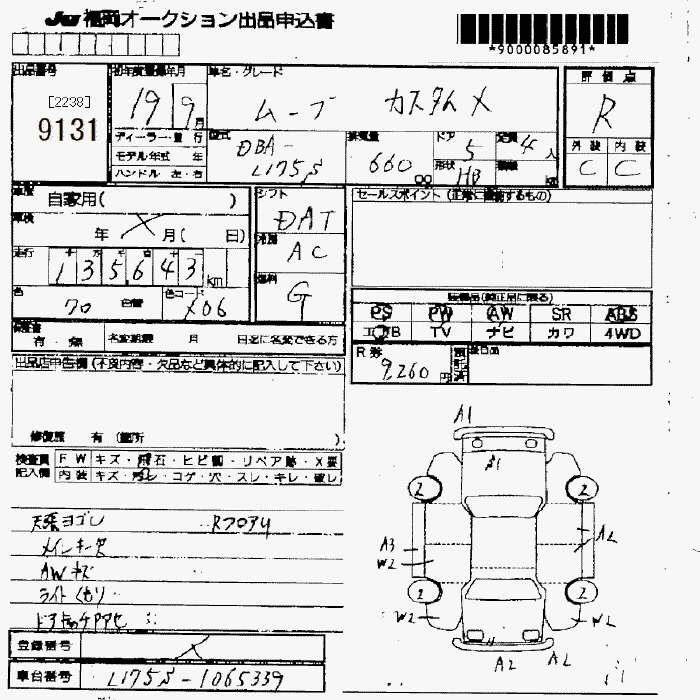 JU 福岡オークション出品申込書
*9000085891*
出品番号 初年度登録年月 車名・グレード 評価点
[2238]
9131
19 9月 ムーブ カスタムX R
ディーラー・並行 型式 排気量 ドア 定員 外装 内装
モデル年式 年 DBA- 5 4人 C C
ハンドル 左・右 L175S 660 cc 形状 HB
車歴 自家用( ) シフト DAT セールスポイント (正常に機能するもの)
車検 年 X 月( 日) 冷房 AC
走行 135643 km 燃料 G
色 70 色コード X06
装備品(純正品に限る)
PS PW AW SR ABS
エアB TV ナビ カワ 4WD
有・無 名変期限 月 日迄に名変できる方
R券 9,260円 預託済 後日品
出品店申告欄 (不良内容・欠品など具体的に記入して下さい)
修復歴 有 (箇所 )
検査員 FW キズ・飛石・ヒビ割・リペア跡・X要
記入欄 内装 キズ・汚レ・コゲ・穴・スレ・キレ・破レ
天張ヨゴレ RフロアU
メインキー欠
AWキズ
ライトくもり
A1
2 2
A3 W2 A2
2 2
W2 W2
A2 A2
登録番号 X
車台番号 L175S-1065339